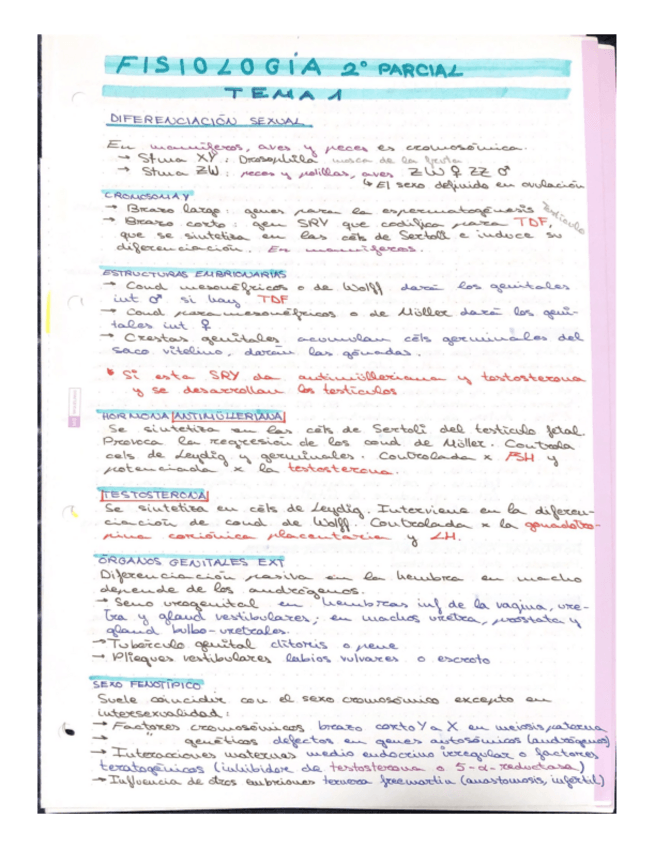 FISIOLOGÍA 2º PARCIAL
TEMA 1
DIFERENCIACIÓN SEXUAL
En mamíferos, aves y peces es cromosómica.
→ Stma XY: Drosophila mosca de la fruta
→ Stma ZW: peces y polillas, aves ZW ♀ ZZ ♂
↳ El sexo definido en ovulación
CROMOSOMA Y
→ Brazo largo: genes para la espermatogénesis testículo
→ Brazo corto: gen SRY que codifica para TDF,
que se sintetiza en las céls de Sertoli e induce su
diferenciación. En mamíferos.
ESTRUCTURAS EMBRIONARIAS
→ Cond mesonéfricos o de Wolff dará los genitales
int ♂ si hay TDF
→ Cond paramesonéfricos o de Müller dará los geni-
tales int ♀
→ Crestas genitales acumulan céls germinales del
saco vitelino, darán las gónadas.
* Si esta SRY da antimülleriana y testosterona
y se desarrollan los testículos
HORMONA ANTIMÜLLERIANA
Se sintetiza en las céls de Sertoli del testículo fetal.
Provoca la regresión de los cond de Müller. Controla
cels de Leydig y germinales. Controlada x FSH y
potenciada x la testosterona.
TESTOSTERONA
Se sintetiza en céls de Leydig. Interviene en la diferen-
ciación de cond de Wolff. Controlada x la gonadotro-
pina coriónica placentaria y LH.
ÓRGANOS GENITALES EXT
Diferenciación pasiva en la hembra en macho
depende de los andrógenos.
→ Seno urogenital en hembras inf de la vagina, ure-
tra y gland vestibulares; en machos uretra, próstata y
gland bulbo-uretrales.
→ Tubérculo genital clítoris o pene
→ Pliegues vestibulares labios vulvares o escroto
SEXO FENOTÍPICO
Suele coincidir con el sexo cromosómico excepto en
intersexualidad:
→ Factores cromosómicos brazo corto Y a X en meiosis paterna
→ " genéticos defectos en genes autosómicos (andrógenos)
→ Interacciones maternas medio endocrino irregular o factores
teratogénicos (inhibidor de testosterona o 5-α-reductasa)
→ Influencia de otros embriones ternera freemartin (anastomosis, infértil)